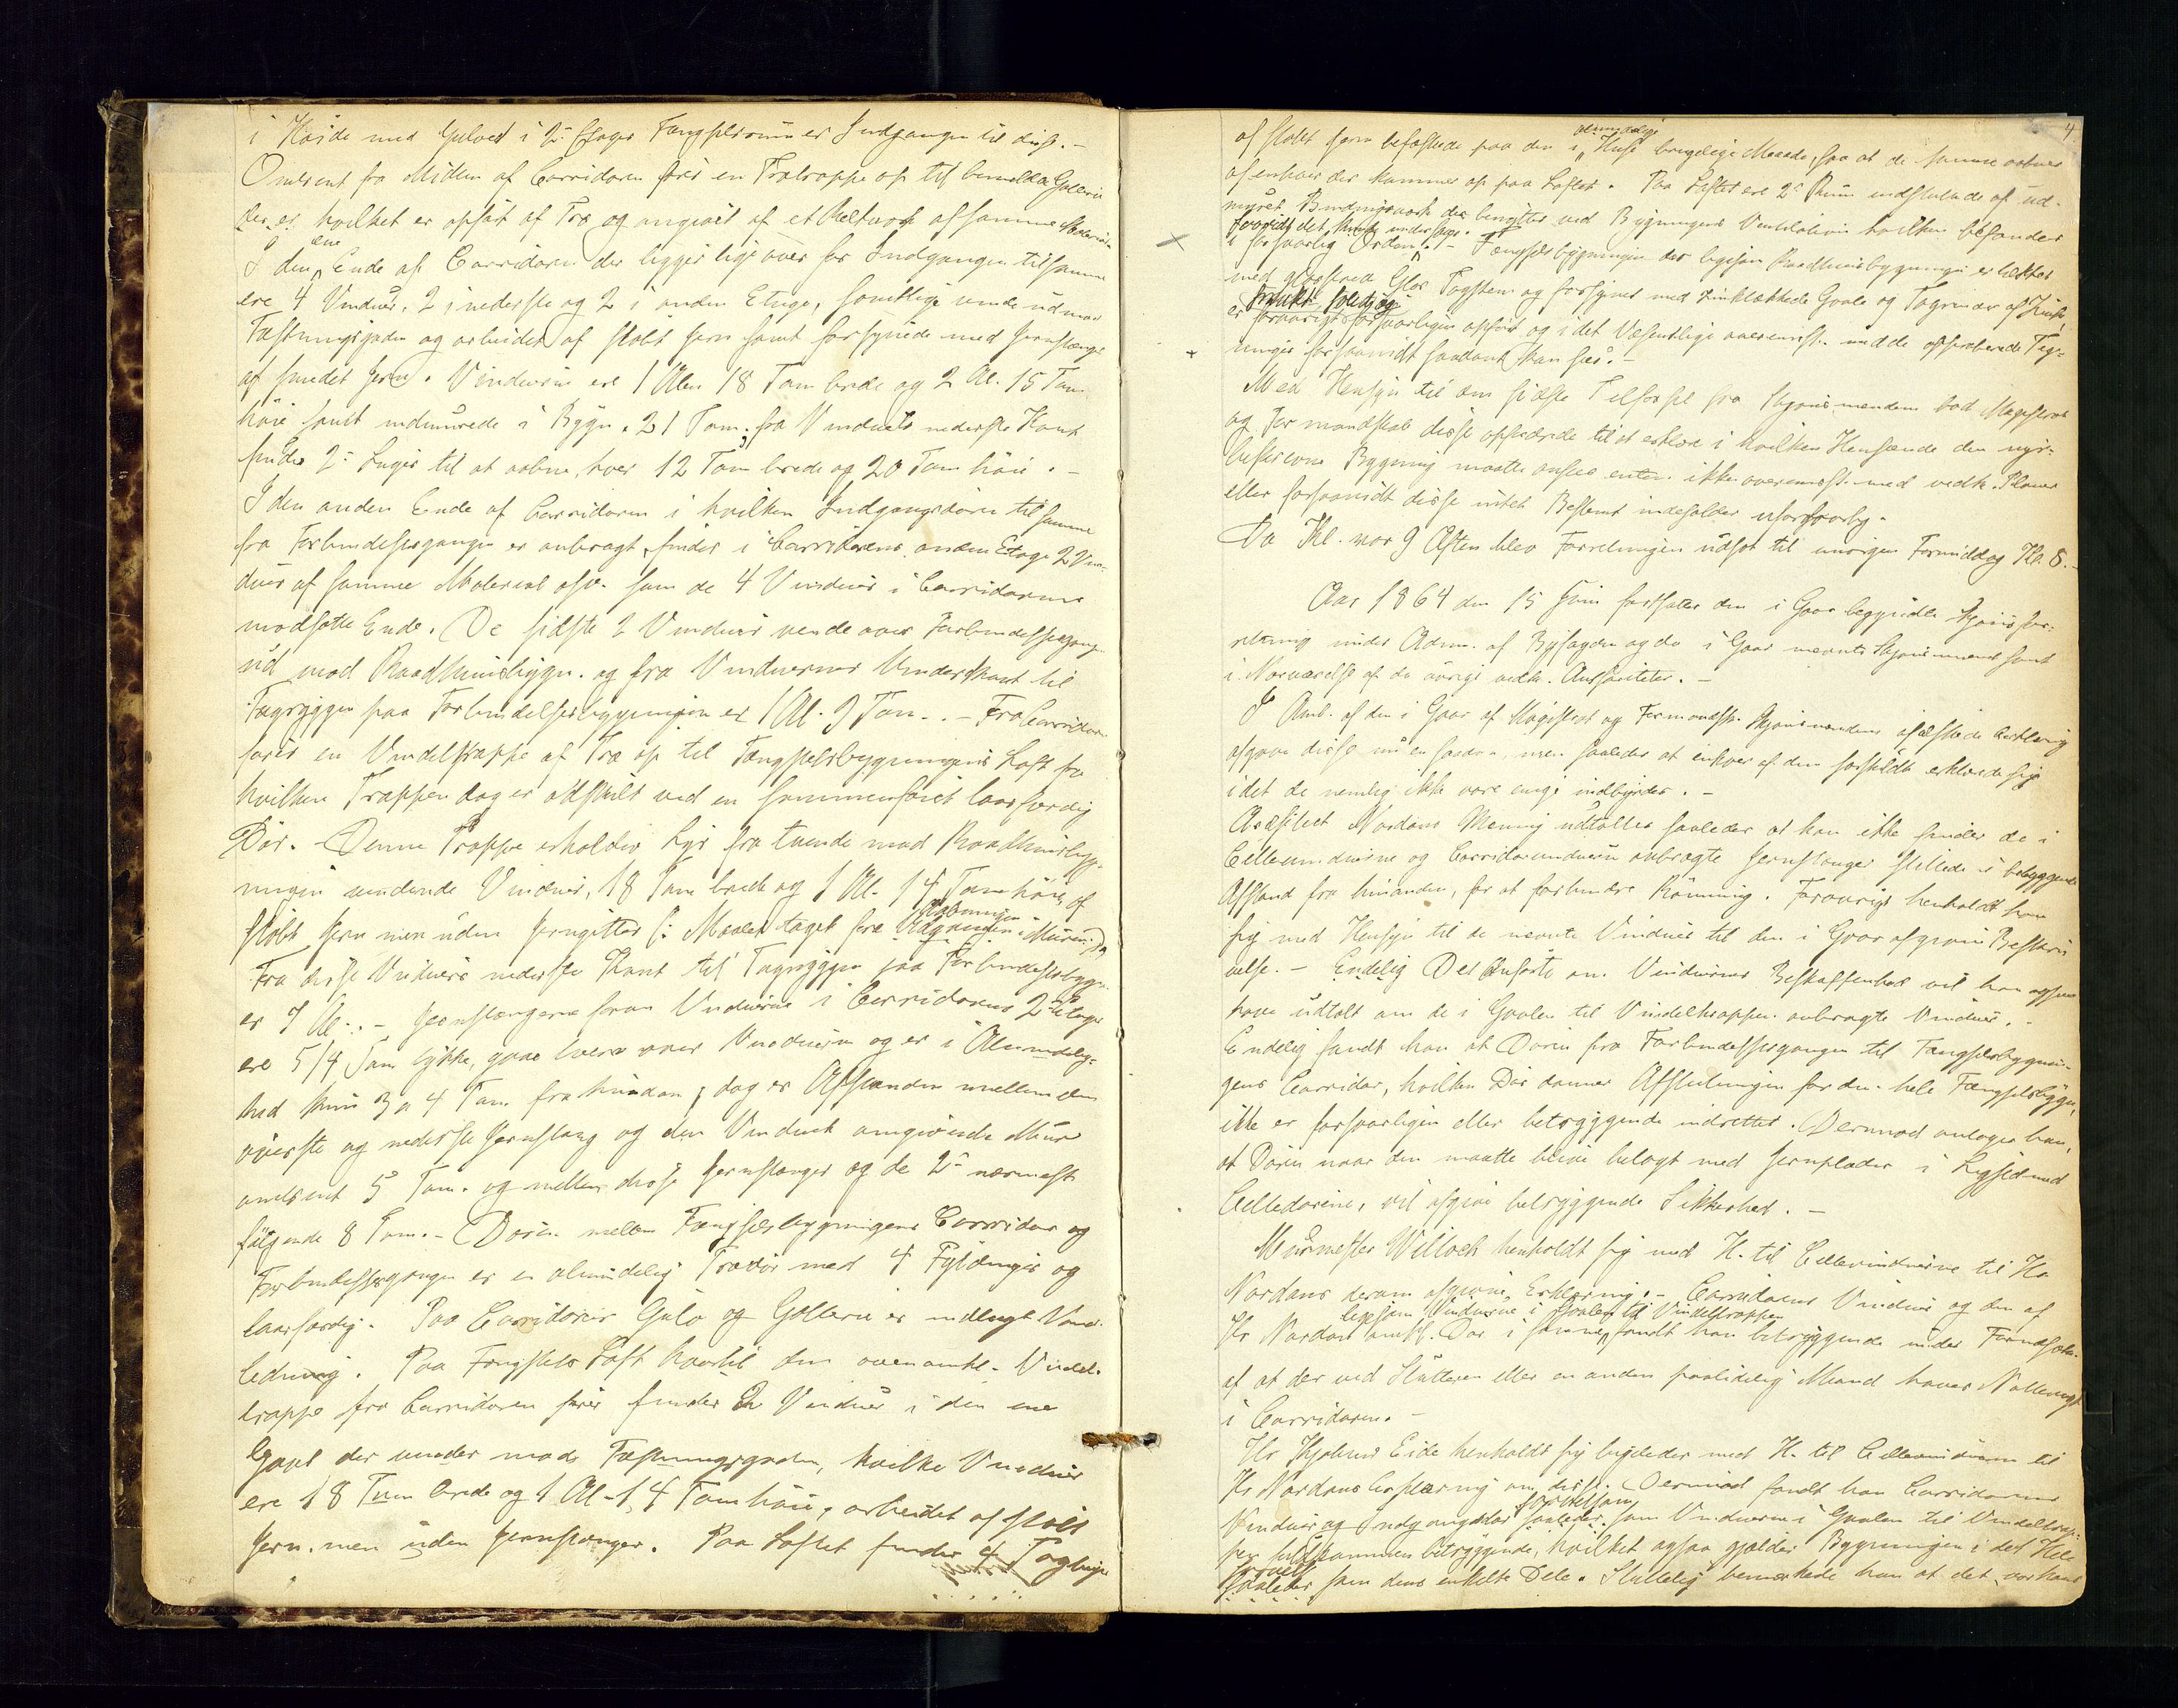 i Høide med Gulvet i 2den Etages Fængselsrum er Indgangen til disse. -
Omtrent fra Midten af Corridoren fører en Trætrappe op til bemeldte Galleri
der er hvilket er opført af Træ og omgivet af et Rekværk af samme Materiale
I den ene Ende af Corridoren der ligger lige over for Indgangen til samme
ere 4 Vinduer, 2 i nederste og 2 i anden Etage, samtlige vende ud mod
Fæstningsgaden og arbeidet af støbt Jern samt forsynede med Jernstænger
af smedet Jern. Vinduerne ere 1 Alen 18 Tom brede og 2 Al. 15 Tom.
høie samt indmurede i Bygn. 21 Tom. fra Vinduets nederste Kant
findes 2de Luger til at aabne, hver 12 Tom brede og 20 Tom høie. -
I den anden Ende af Corridoren i hvilken Indgangsdøren til samme
fra Forbindelsesgangen er anbragt, findes i Corridorens anden Etage 2 Vin-
duer af samme Material osv. som de 4 Vinduer i Corridorens
modsatte Ende. De sidste 2 Vinduer vende over Forbindelsesgangen
ud mod Raadhuusbygn. og fra Vinduernes Underkant til
Tagryggen paa Forbindelsesbygningen er 1 Al. 9 Tom. - Fra Corridoren
fører en Vindeltrappe af Træ op til Fængselsbygningens Loft fra
hvilken Trappen dog er adskilt ved en sammenføiet laasfærdig
Dør. - Denne Trappe erholder Lys fra tvende mod Raadhuusbyg-
ningen vendende Vinduer, 18 Tom brede og 1 Al. 14 Tom høie, af
støbt Jern men uden Jerngitter (: Maalet taget fra Aabningen i Muren :)
Fra disse Vinduers nederste Kant til Tagryggen paa Forbindelsesbygn.
er 7 Al. - Jernstængerne foran Vinduerne i Corridorens 2 Etager
ere 5/4 Tom tykke, gaae tvers over Vinduerne og er i Almindelig-
hed kun 3 a 4 Tom. fra hinanden, dog er Afstanden mellem den
øverste og nederste Jernstang og den Vinduet omgivende Muur
omtrent 5 Tom. og mellem disse Jernstænger og de 2de nærmest
følgende 8 Tom. - Døren mellem Fængselsbygningens Corridor og
Forbindelsesgangen er en almindelig Trædør med 4 Fyldinger og
laasfærdig. Paa Corridorens Gulv og Galleri er indlagt Vand-
ledning. Paa Fængslets Loft hvortil den ovenomtl. Vindel-
trappe fra Corridoren fører findes 2 Vinduer i den ene
Gavl der vender mod Fæstningsgaden, hvilke Vinduer
ere 18 Tom brede og 1 Al. 14 Tom høie, arbeidet af støbt
Jern, men uden Jernstænger. Paa Loftet findes 4 Tagluger
4
almindelige
af støbt Jern befæstede paa den i Huse brugelige Maade, saa at de kunne aabnes
af enhver der kommer op paa Loftet. Paa Loftet ere 2de Rum indsluttede af ud-
muret Bindingsværk der benyttes ved Bygningens Ventilation hvilken befandtes
forsaavidt det kunde undersøges.
i forsvarlig Orden. - Fængselsbygningen der ligesom Raadhuusbygningen er tækket
med glasseret Tagsten og forsynet med zinktækkede Gavle og Tagrender af Zink,
er forøvrigt forsvarligen opført og i det Væsentlige overensst. med de approberede Teg-
ninger forsaavidt saadant kan sees. -
Med Hensyn til den sidste Tilførsel fra Skjønsmændene bad Magistrat
og Formandskab disse opfordrede til at erklære i hvilken Henseende den nys-
beskrevne Bygning maatte ansees enten ikke overensst. med vedk. Planer
eller forsaavidt disse intet Bestemt indeholder uforsvarlig.
Da Kl. var 9 Aften blev Forretningen udsat til imorgen Formiddag Kl. 8. -
Aar 1864 den 15 Juni fortsattes den i Gaar begyndte Skjønsfor-
retning under Adm. af Byfogden og de i Gaar nævnte Skjønsmænd samt
i Nærværelse af de øvrige vedk. Autoriteter. -
I Anl. af den i Gaar af Magistrat og Formandsk. Skjønsmændene æskede Erklæring
afgave disse nu en saadan men saaledes at enhver af dem særskildt erklærede sig
idet de nemlig ikke vare enige indbyrdes. -
Arcitect Nordans Mening udtaltes saaledes at han ikke finder de i
Cellevinduerne og Corridorvinduerne anbragte Jernstænger stillede i betryggende
Afstand fra hinanden, for at forhindre Rømning. Forøvrigt henholdt han
sig med Hensyn til de nævnte Vinduer til den i Gaar afgivne Beskri-
velse. - Endelig Det Anførte om Vinduernes Beskaffenhed vil han ogsaa
have udtalt om de i Gavlen til Vindeltrappen anbragte Vinduer. -
Endelig fandt han at Døren fra Forbindelsesgangen til Fængselsbygnin-
gens Corridor, hvilken Dør danner Afslutningen for den hele Fængselsbygn.,
ikke er forsvarligen eller betryggende indrettet. Derimod antoges han,
at Døren naar den maatte blive belagt med Jernplader i Lighed med
Celledørene, vil afgive betryggende Sikkerhed. -
Muurmester Willoch henholdt sig med H. til Cellevinduerne til Hr
Nordans derom afgivne Erklæring. - Corridorens Vinduer og den af
ligesom Vinduerne i Gavlen til Vindeltrappen
Hr Nordan omtl. Dør i samme, fandt han betryggende under Forudsætn.
af at der ved Slutteren eller en anden paalidelig Mand haves Nattevagt
i Corridoren. -
Hr Skjolmes Eide henholdt sig ligeledes med H. til Cellevinduerne til
Hr Nordans Erklæring om disse. Derimod fandt han Corridorens
Vinduer og Indgangsdør saavelsom Vinduerne i Gavlen til Vindeltrap-
pen fuldkommen betryggende, hvilket ogsaa gjælder Bygningen i det Hele
saavel som dens enkelte Dele. Sluttelig bemærkede han at det var hans